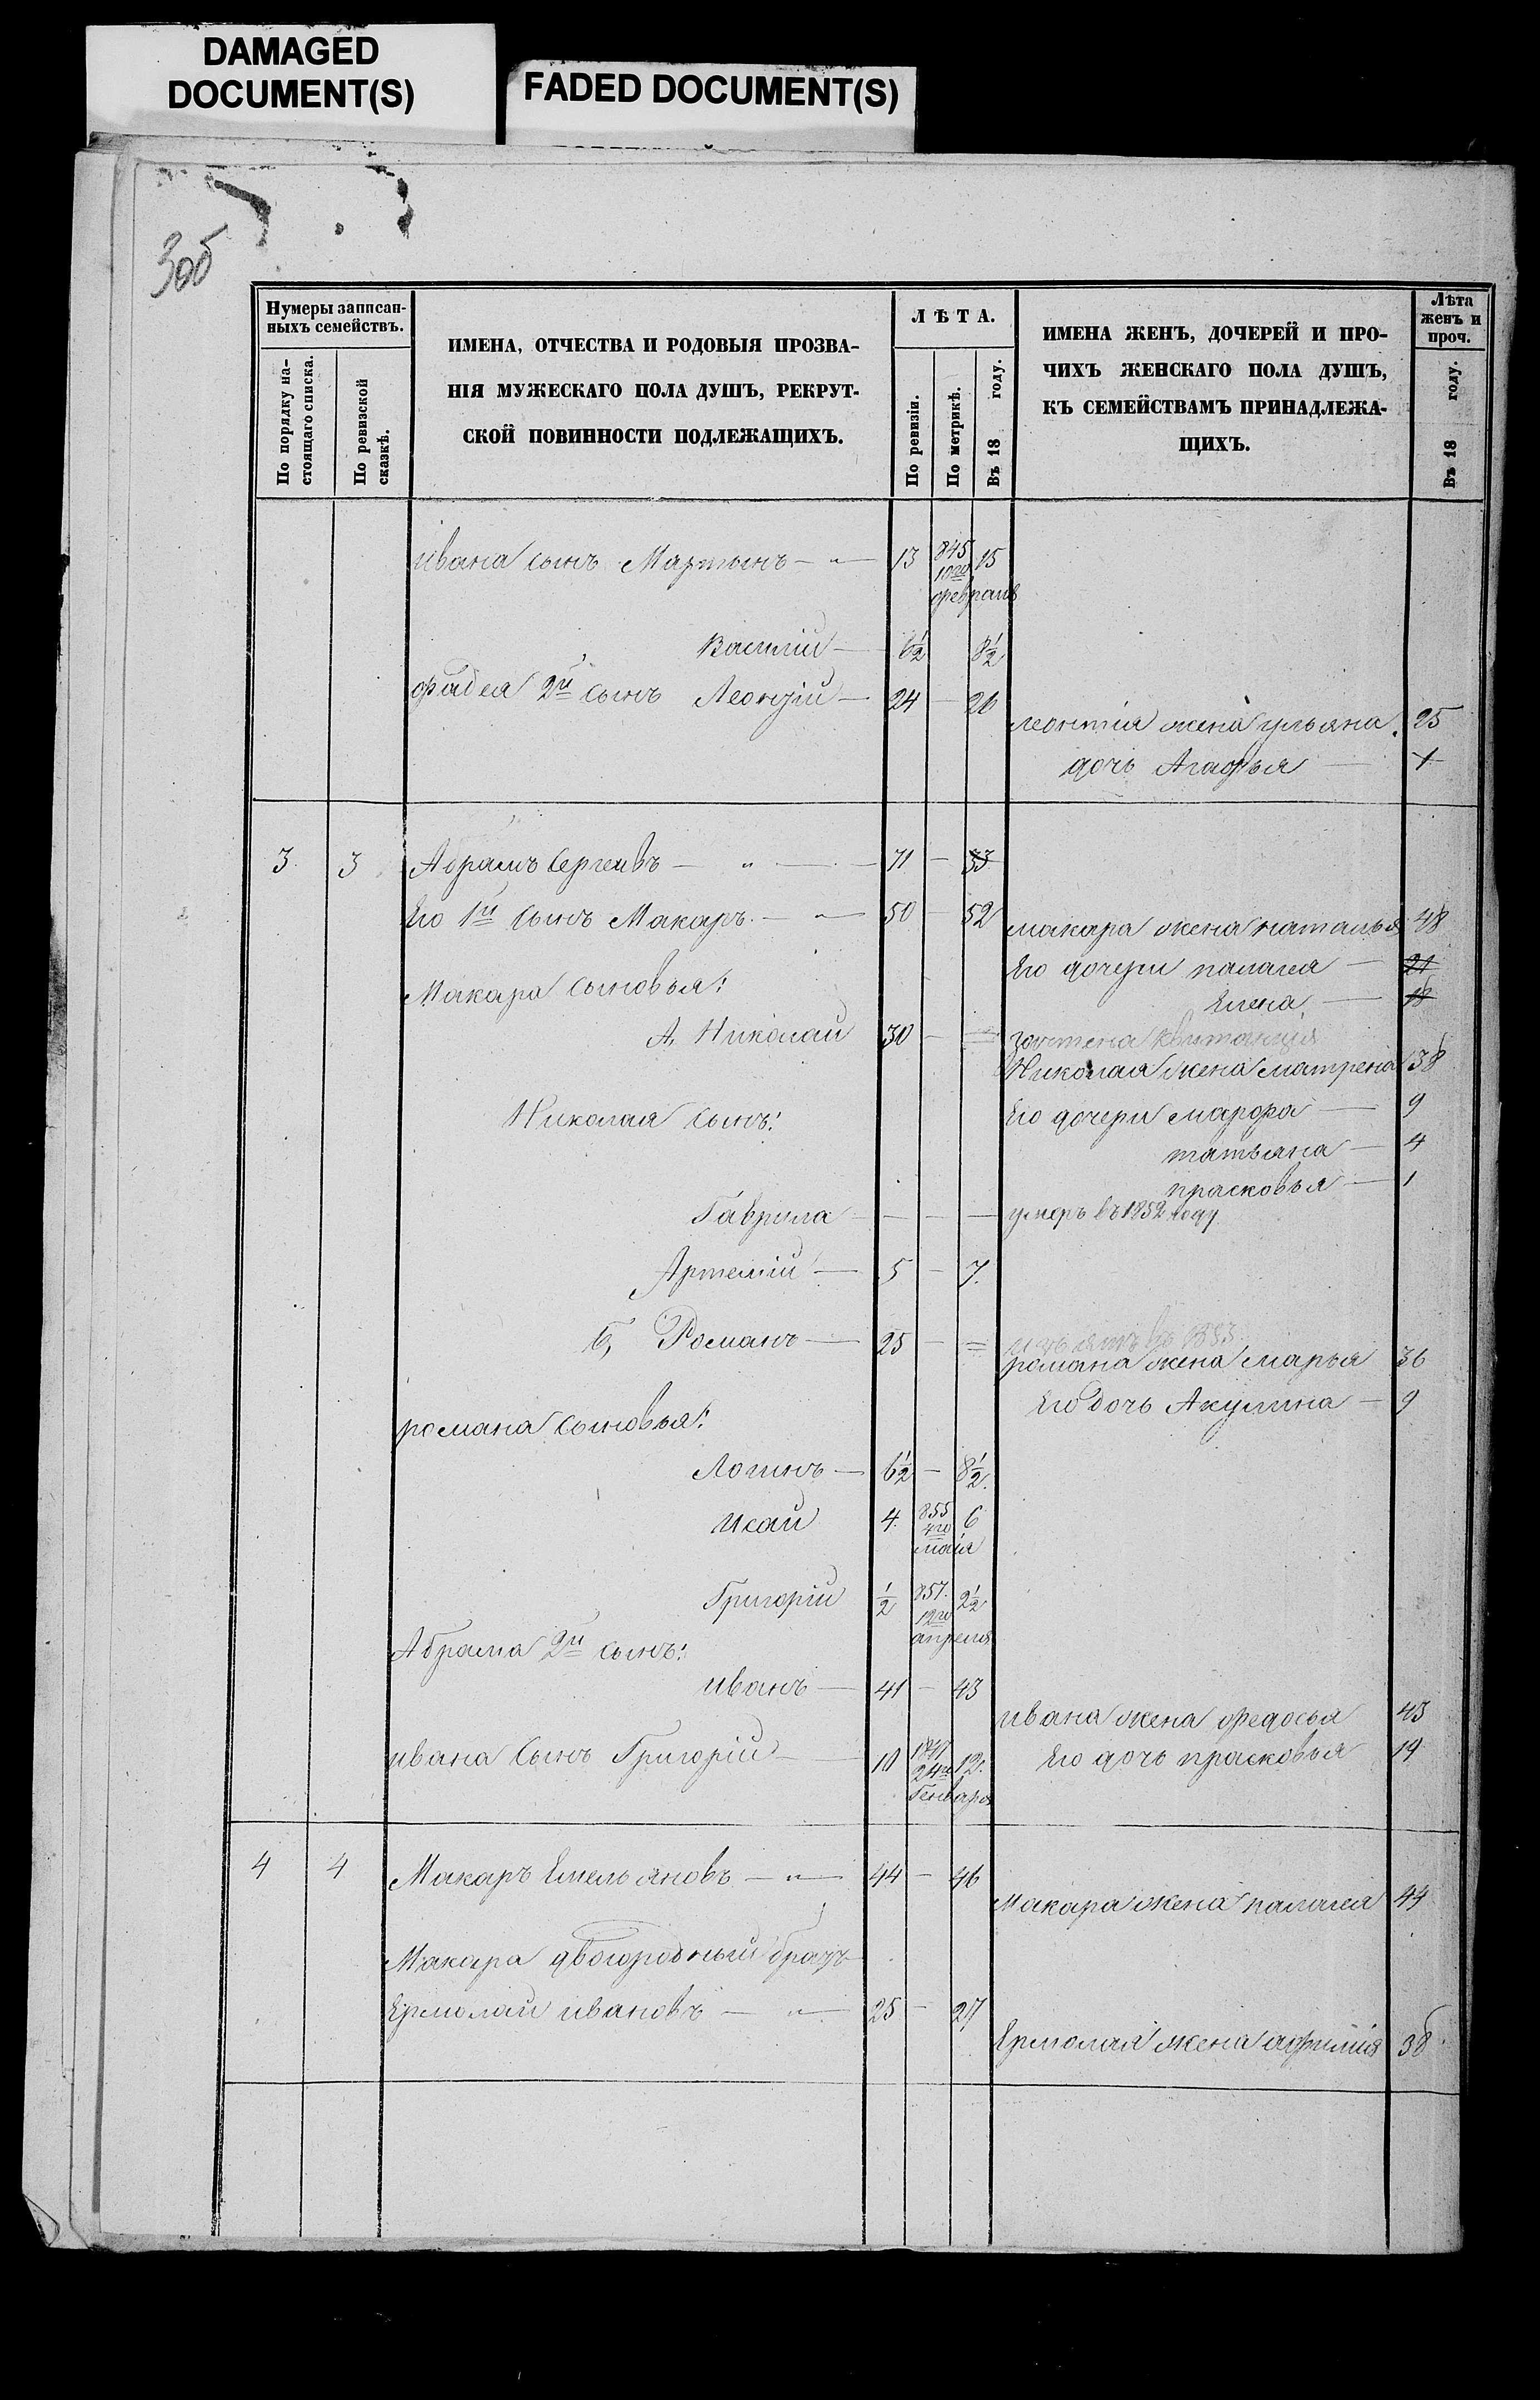 DAMAGED
DOCUMENT(S)
FADED DOCUMENT(S)
Нумеры записан-
ныхъ семействъ.
По порядку на-
стоящаго списка.
По ревизской
сказкѣ.
ИМЕНА, ОТЧЕСТВА И РОДОВЫЯ ПРОЗВА-
НІЯ МУЖЕСКАГО ПОЛА ДУШЪ, РЕКРУТ-
СКОЙ ПОВИННОСТИ ПОДЛЕЖАЩИХЪ.
ЛѢТА.
По ревизіи.
По метрикѣ.
Въ 18 году.
ИМЕНА ЖЕНЪ, ДОЧЕРЕЙ И ПРО-
ЧИХЪ ЖЕНСКАГО ПОЛА ДУШЪ,
КЪ СЕМЕЙСТВАМЪ ПРИНАДЛЕЖА-
ЩИХЪ.
Лѣта
женъ и
проч.
Въ 18 году.
Ивана сынъ Мартынъ — „ — 13 845 15
10го
февраля
Василій — 6½ 8½
Фадея 2й сынъ Леонтій — 24 — 26
леонтія жена ульяна. 25
дочь Агафья — 1
3. 3 Абрамъ Сергеивъ — „ — 71 — 33
Его 1й сынъ Макаръ. — „ — 50 — 52
макара жена наталья 48
Его дочери палагея — 21
Макара сыновья:
Елена — 18
А, Николай 30 — = зачтена квитанція
Николая жена матрена 38
Николая сынъ: Его дочери марфа — 9
татьяна — 4
прасковья — 1
Гаврила — — — умеръ въ 1852 году
Артемій — 5 — 7.
Б, Романъ — 25 — = 1853
романа жена марья 36
Его дочь Акулина — 9
романа сыновья:
Логинъ — 6½ — 8½.
Исай 4 855 6
4го
маія
Григорій ½ 857. 2½
12го
апреля
Абрама 2й сынъ:
иванъ — 41 — 43
ивана жена федосья 43
ивана сынъ Григорій — 10 1847 12. Его дочь прасковья 19
24го
Генваря
4 4 Макаръ Емельяновъ — „ — 44 — 46
Макара жена палагея 44
Макара двоюродный братъ
Ермолай ивановъ — „ — 25 — 27
Ермолая жена афимія 38